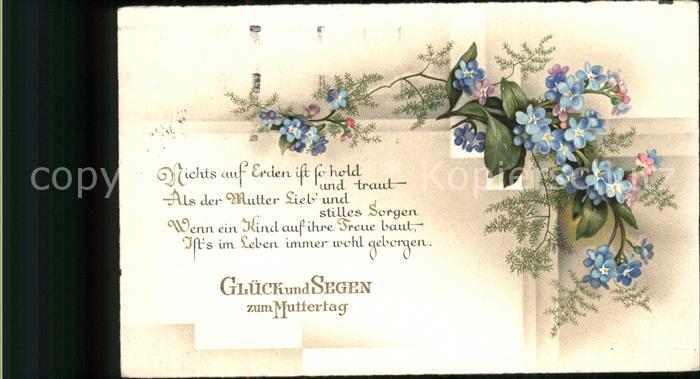 Nichts auf Erden ist so hold
und traut
Als der Mutter Lieb' und
stilles Sorgen
Wenn ein Kind auf ihre Treue baut,
Ist's im Leben immer wohl geborgen.
GLÜCK und SEGEN
zum Muttertag